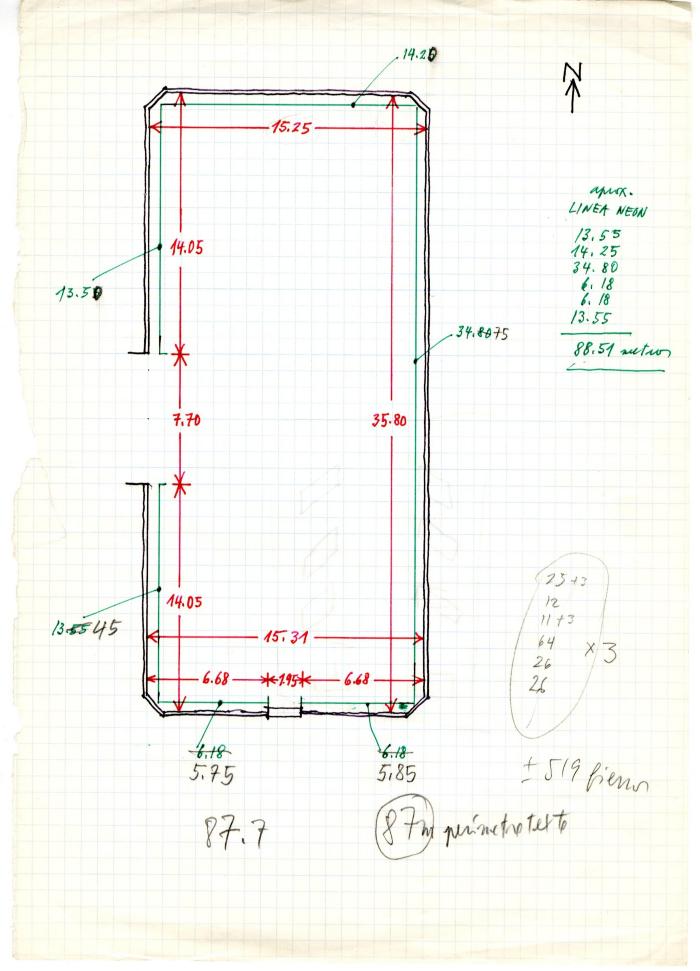 14.20
N
15.25
aprox.
LINEA NEON
13.55
14.25
34.80
6.18
6.18
13.55
88.51 metros
14.05
13.50
34.8075
7.70
35.80
14.05
13.5545
15.31
6.68
1.95
6.68
6.18
5.75
6.18
5.85
23+3
12
11+3
64
26
26
x 3
± 519 fierros
87.7
87m perimetro texto